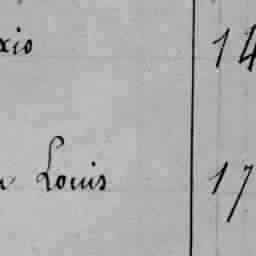 xio 14
Louis 17